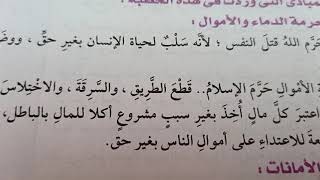 المبادئ التي وردت في هذه الخطبة
حرمة الدماء والأموال :
حَرَّم اللهُ قتلَ النفس ؛ لأنَّه سَلْبٌ لحياة الإنسان بغير حقٍّ ،
الأموالِ حَرَّمَ الإسلامُ.. قَطْعَ الطَّرِيقِ ، والسَّرِقَةَ ، والاخْتِلاسَ
اعتبرَ كلَّ مالٍ أُخِذَ بغير سببٍ مشروعٍ أكلا للمالِ بالباطلِ،
للاعتداءِ على أموالِ الناس بغير حقٍّ.
الأمانات :